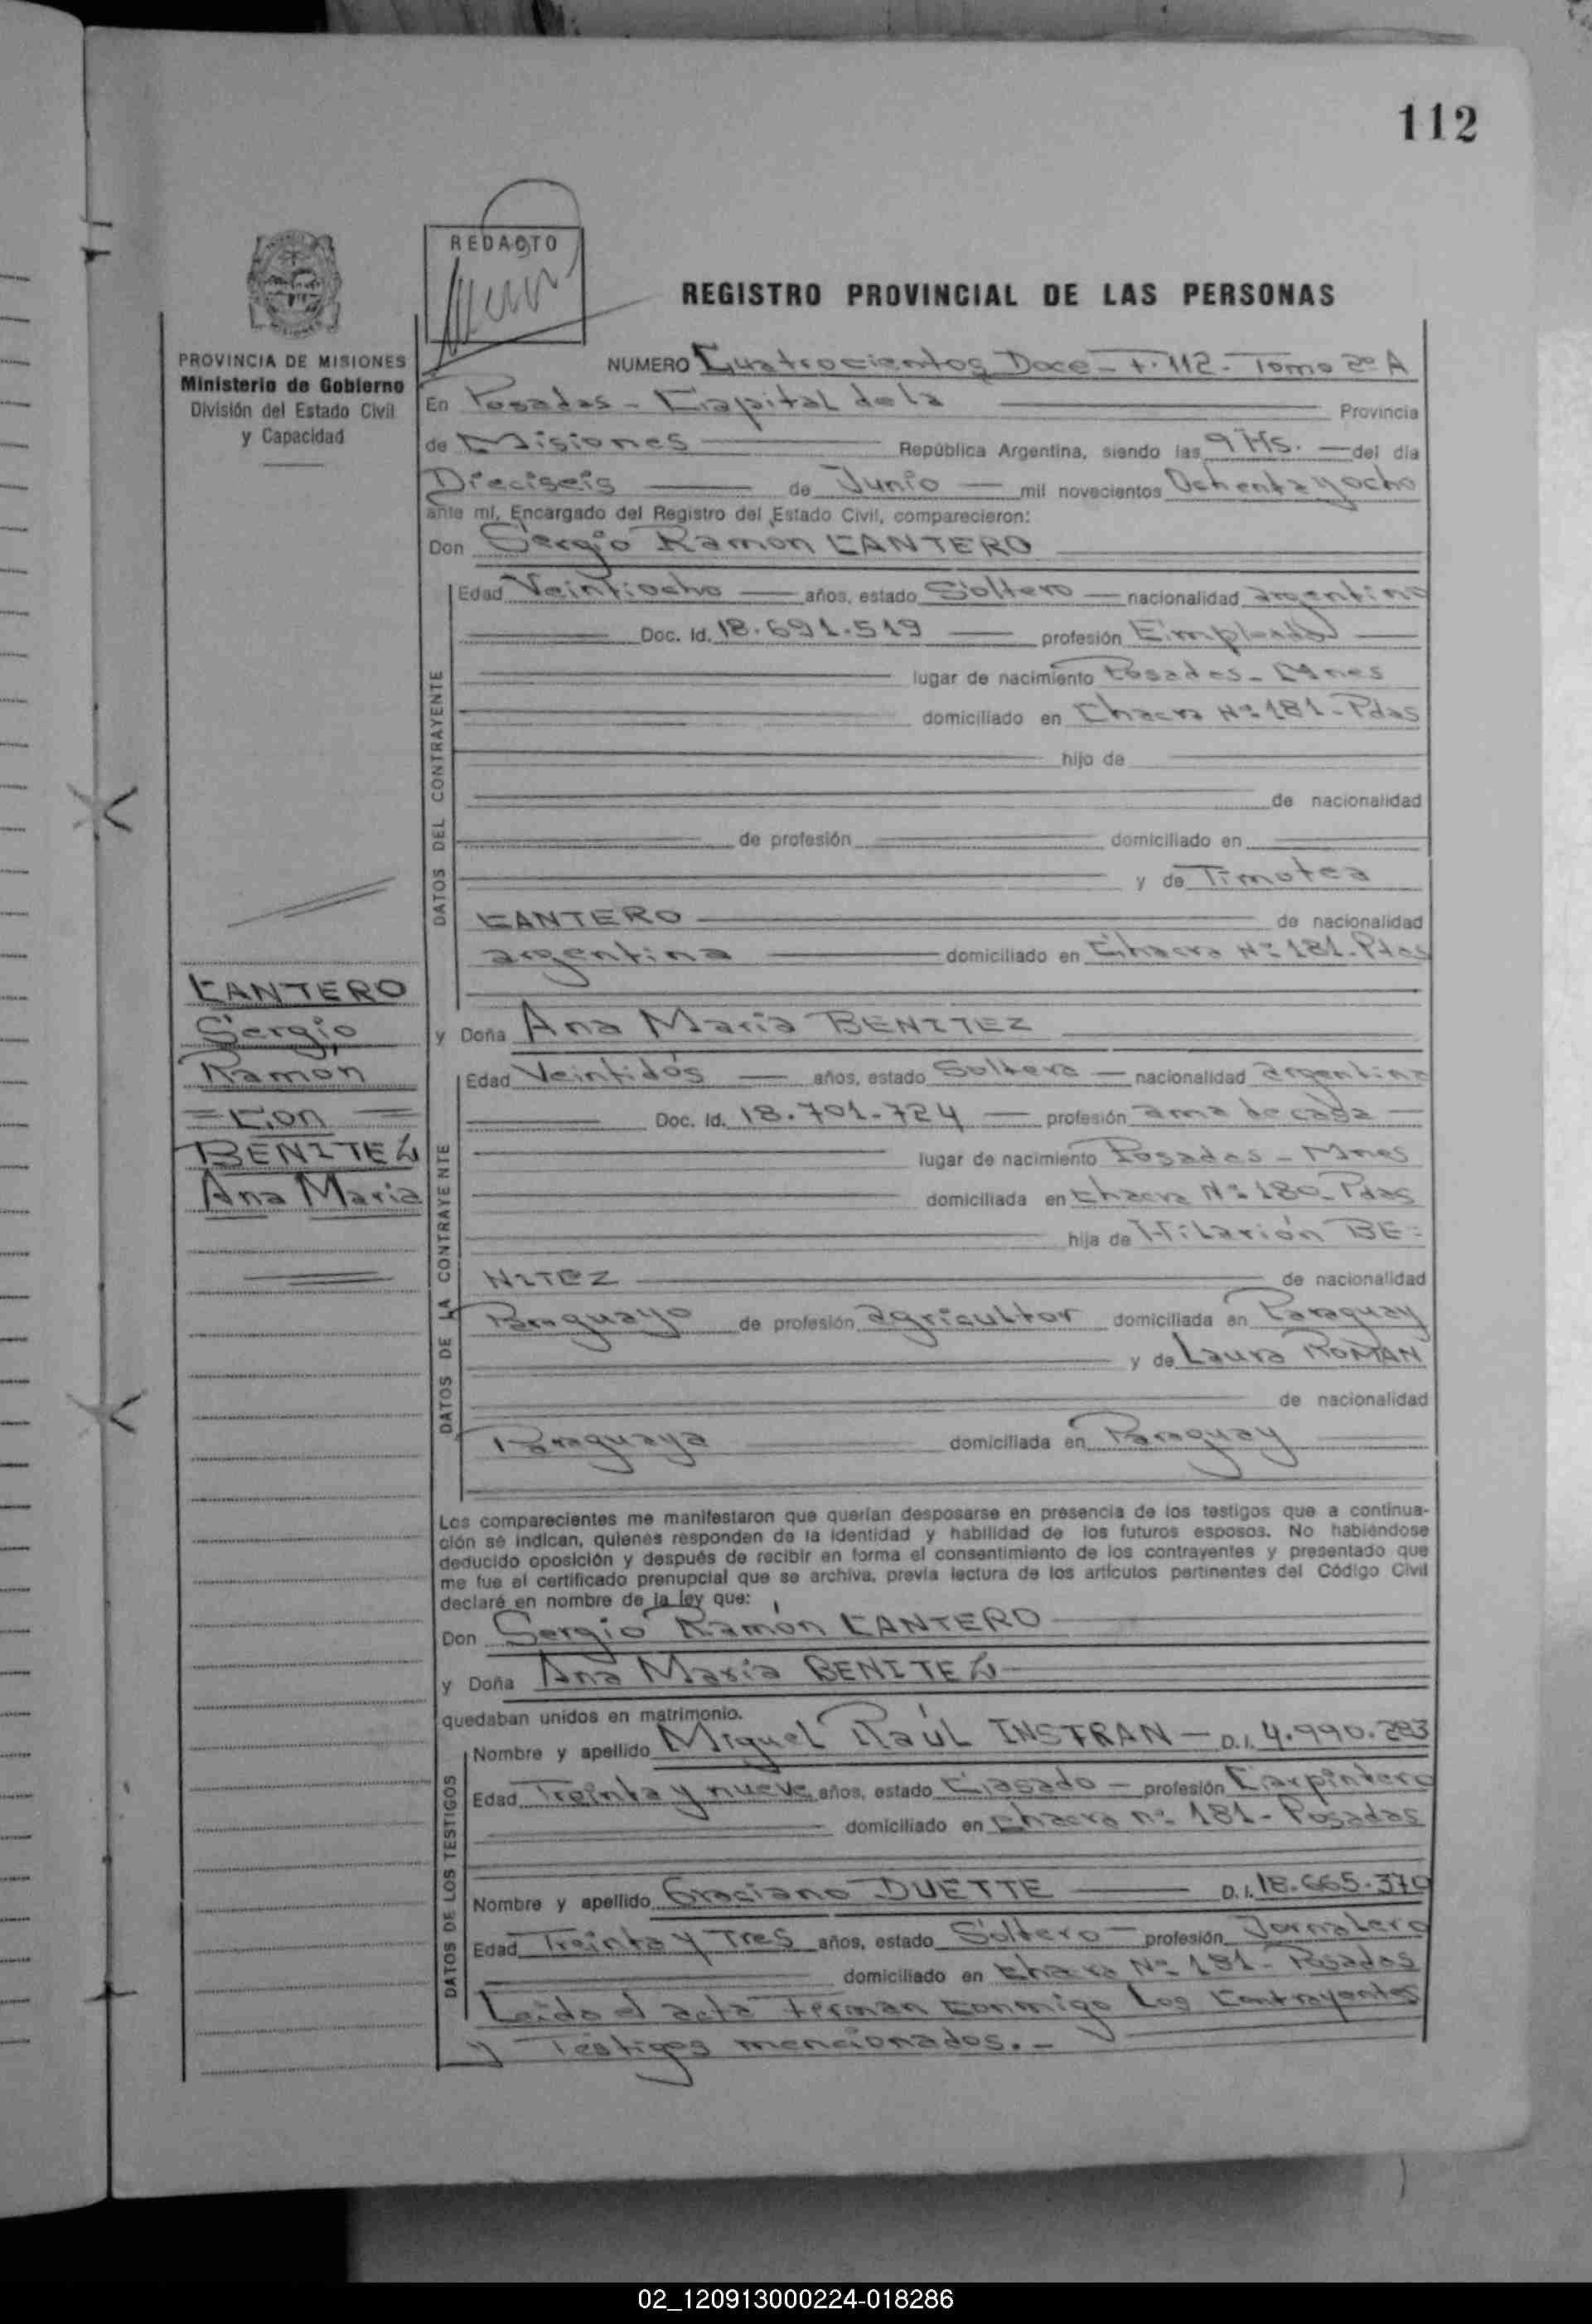 112
REDACTO
REGISTRO PROVINCIAL DE LAS PERSONAS
PROVINCIA DE MISIONES
Ministerio de Gobierno
División del Estado Civil
y Capacidad
NUMERO Cuatrocientos Doce - F. 112 - Tomo 2º A
En Posadas - Capital de la Provincia
de Misiones República Argentina, siendo las 9 Hs. del día
Dieciseis de Junio mil novecientos Ochenta y ocho
ante mí, Encargado del Registro del Estado Civil, comparecieron:
Don Sergio Ramon CANTERO
DATOS DEL CONTRAYENTE
Edad Veintiocho años, estado Soltero nacionalidad argentino
Doc. Id. 18.691.519 profesión Empleado
lugar de nacimiento Posadas - Mnes
domiciliado en Chacra Nº 181 - Pdas
hijo de
de nacionalidad
de profesión domiciliado en
y de Timotea
CANTERO de nacionalidad
argentina domiciliado en Chacra Nº 181 - Pdas
CANTERO
Sergio
Ramón
= Con =
BENITEZ
Ana Maria
y Doña Ana María BENITEZ
DATOS DE LA CONTRAYENTE
Edad Veintidós años, estado Soltera nacionalidad argentina
Doc. Id. 18.701.724 profesión ama de casa
lugar de nacimiento Posadas - Mnes
domiciliada en Chacra Nº 180 - Pdas
hija de Hilarión BE=
NITEZ de nacionalidad
Paraguayo de profesión agricultor domiciliada en Paraguay
y de Laura ROMAN
de nacionalidad
Paraguaya domiciliada en Paraguay
Los comparecientes me manifestaron que querían desposarse en presencia de los testigos que a continua-
ción se indican, quienes responden de la identidad y habilidad de los futuros esposos. No habiéndose
deducido oposición y después de recibir en forma el consentimiento de los contrayentes y presentado que
me fue el certificado prenupcial que se archiva, previa lectura de los artículos pertinentes del Código Civil
declaré en nombre de la ley que:
Don Sergio Ramón CANTERO
y Doña Ana María BENITEZ
quedaban unidos en matrimonio.
DATOS DE LOS TESTIGOS
Nombre y apellido Miguel Raúl INSTRAN - D.I. 4.990.283
Edad Treinta y nueve años, estado Casado - profesión Carpintero
domiciliado en chacra nº 181 - Posadas
Nombre y apellido Graciano DUETTE D.I. 18.665.370
Edad Treinta y Tres años, estado Soltero - profesión Jornalero
domiciliado en chacra Nº 181 - Posadas
Leida el acta Firman conmigo Los Contrayentes
y Testigos mencionados. -
02_120913000224-018286